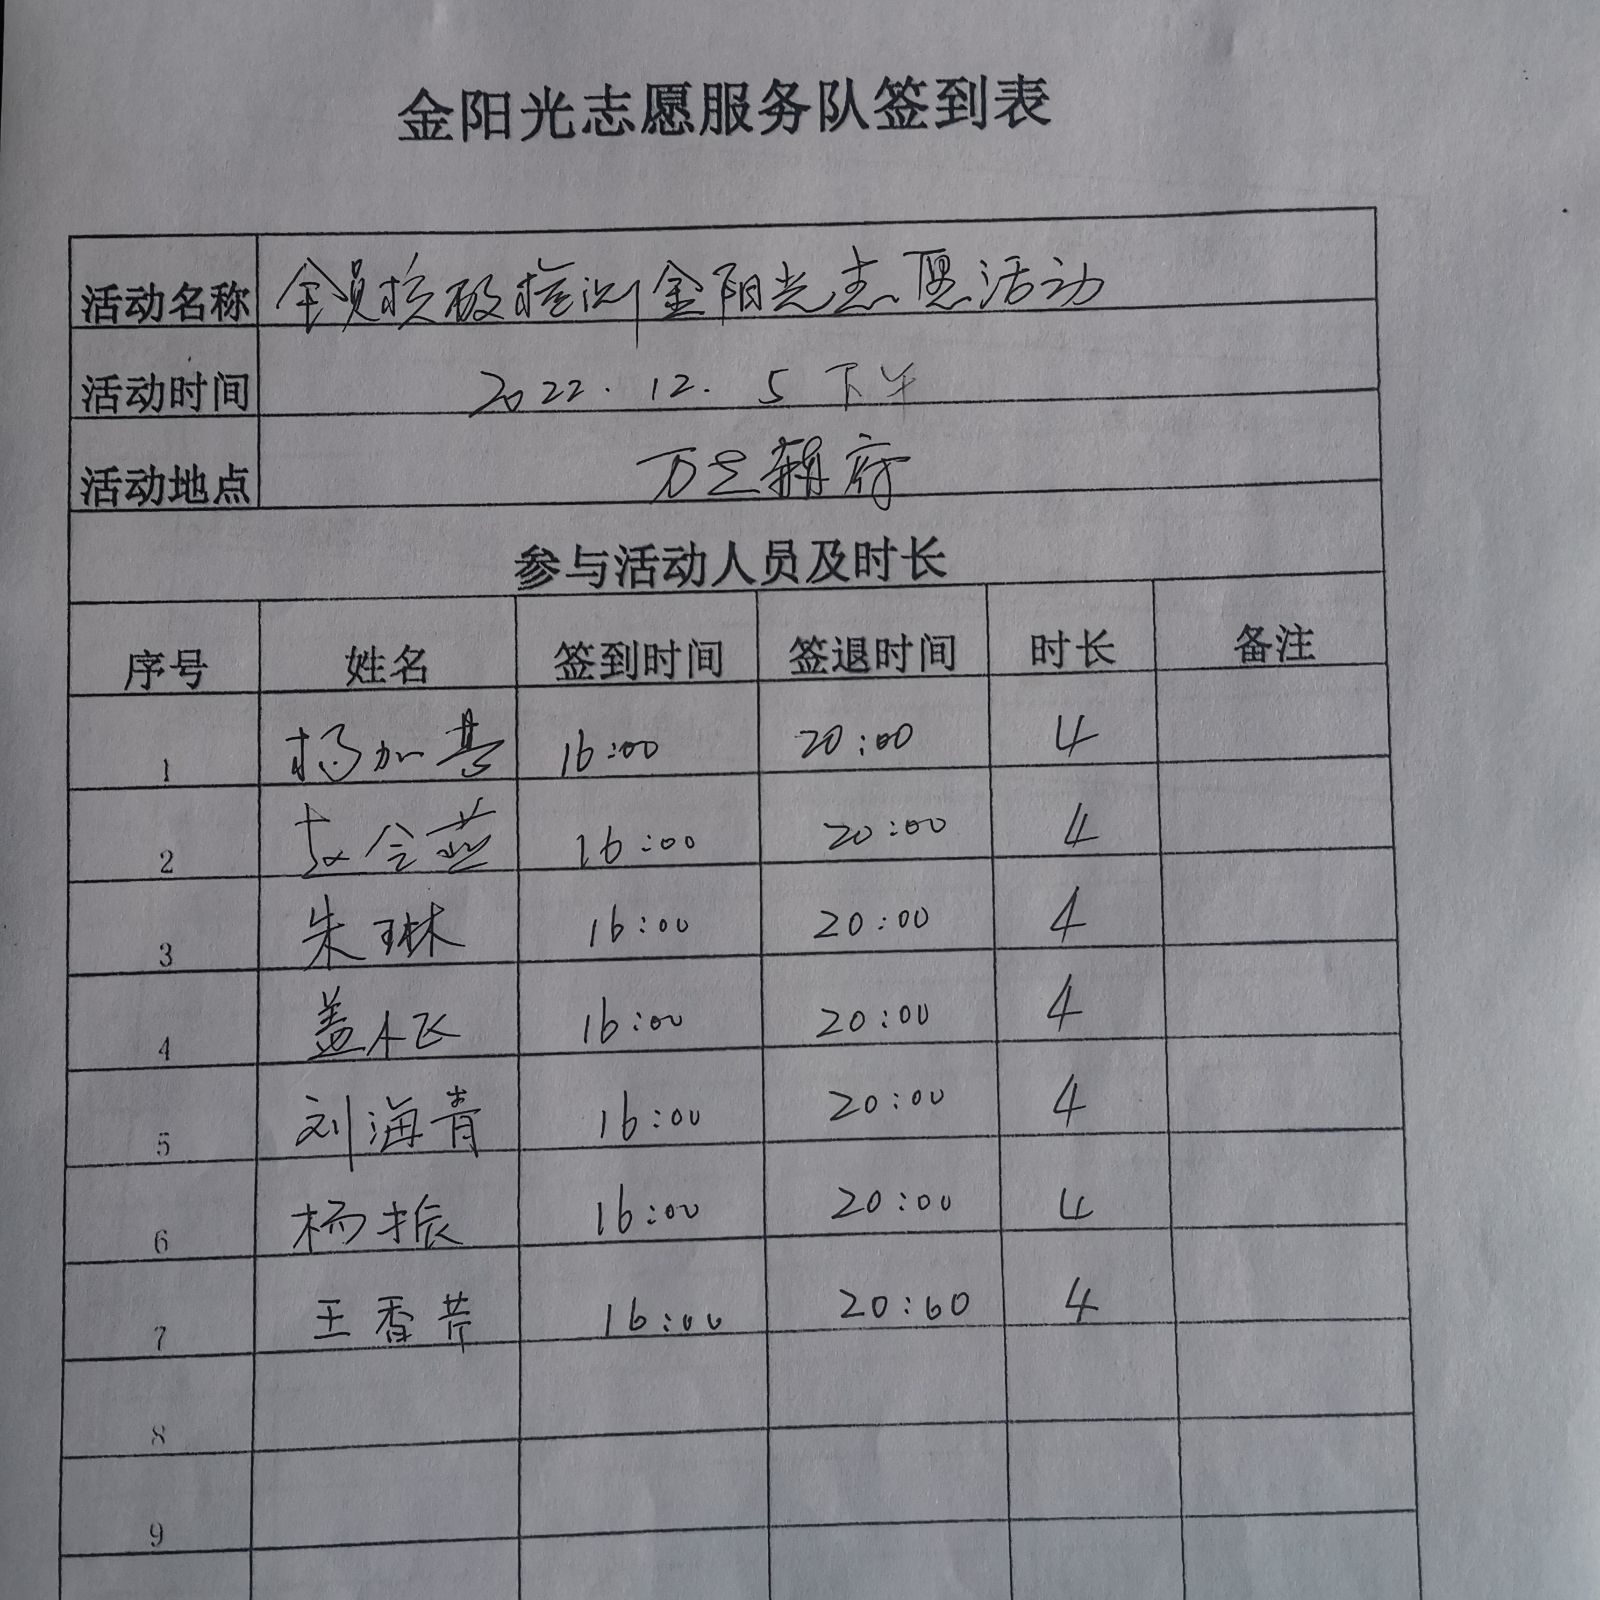 金阳光志愿服务队签到表
活动名称 全员核酸检测金阳光志愿活动
活动时间 2022.12.5下午
活动地点 万 府
参与活动人员及时长
序号 姓名 签到时间 签退时间 时长 备注
1 杨加 16:00 20:00 4
2 16:00 20:00 4
3 朱琳 16:00 20:00 4
4 盖 飞 16:00 20:00 4
5 刘海青 16:00 20:00 4
6 杨振 16:00 20:00 4
7 王香芹 16:00 20:60 4
8
9